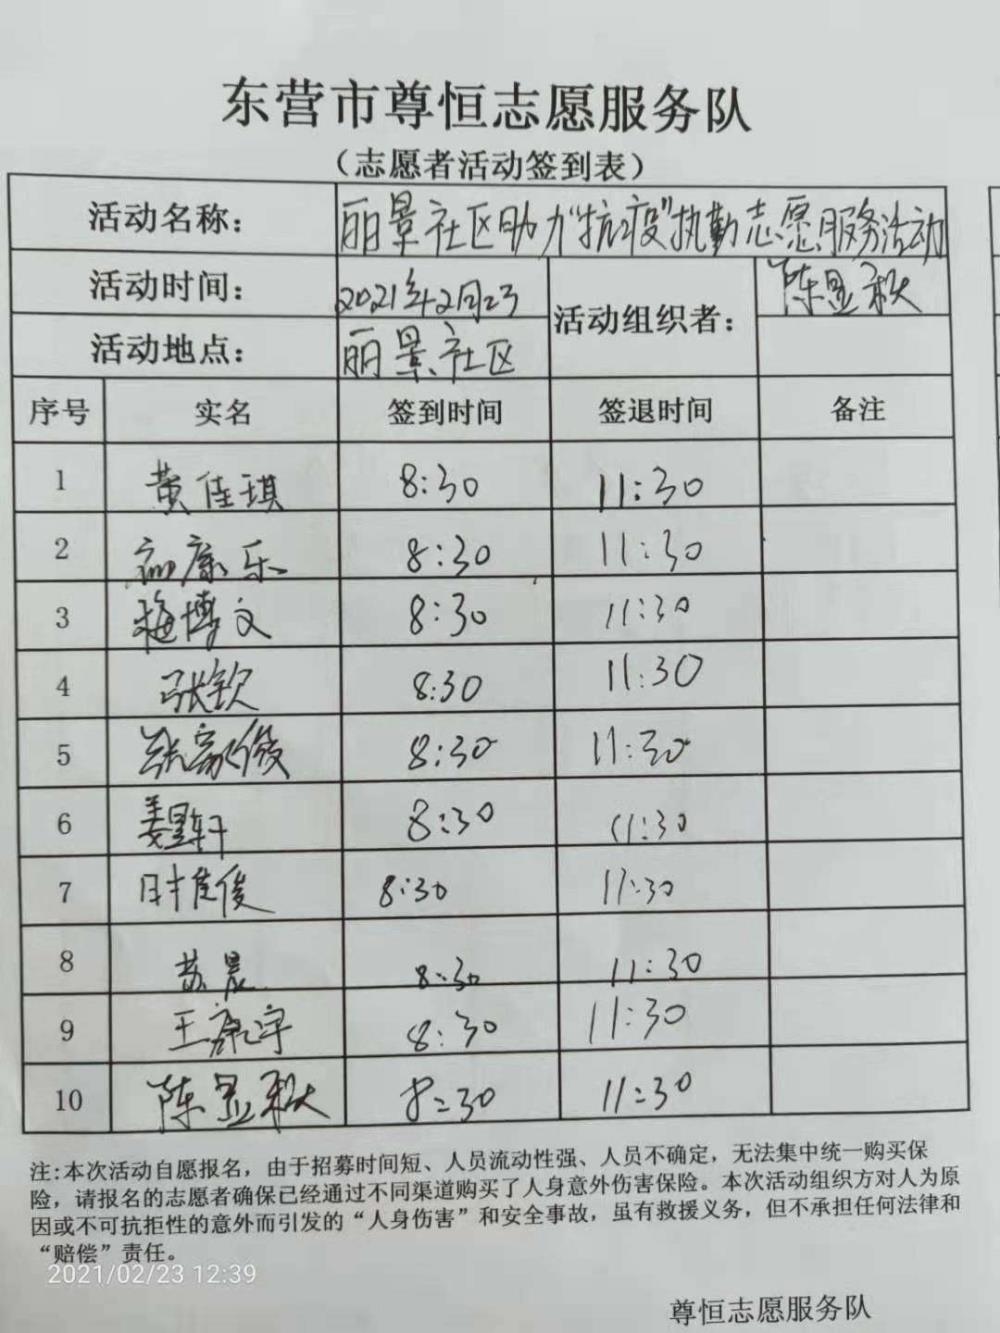 东营市尊恒志愿服务队
（志愿者活动签到表）
活动名称： 丽景社区助力“抗疫”执勤志愿服务活动
活动时间： 2021年2月23 活动组织者： 陈显秋
活动地点： 丽景社区
序号 实名 签到时间 签退时间 备注
1 黄佳琪 8:30 11:30
2 康乐 8:30 11:30
3 梅博文 8:30 11:30
4 张钦 8:30 11:30
5 张家俊 8:30 11:30
6 姜星轩 8:30 11:30
7 时佳俊 8:30 11:30
8 苏晨 8:30 11:30
9 王康宇 8:30 11:30
10 陈显秋 8:30 11:30
注:本次活动自愿报名，由于招募时间短、人员流动性强、人员不确定，无法集中统一购买保
险，请报名的志愿者确保已经通过不同渠道购买了人身意外伤害保险。本次活动组织方对人为原
因或不可抗拒性的意外而引发的“人身伤害”和安全事故，虽有救援义务，但不承担任何法律和
“赔偿”责任。
2021/02/23 12:39
尊恒志愿服务队